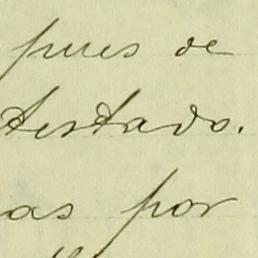 pues de
testado.
as por